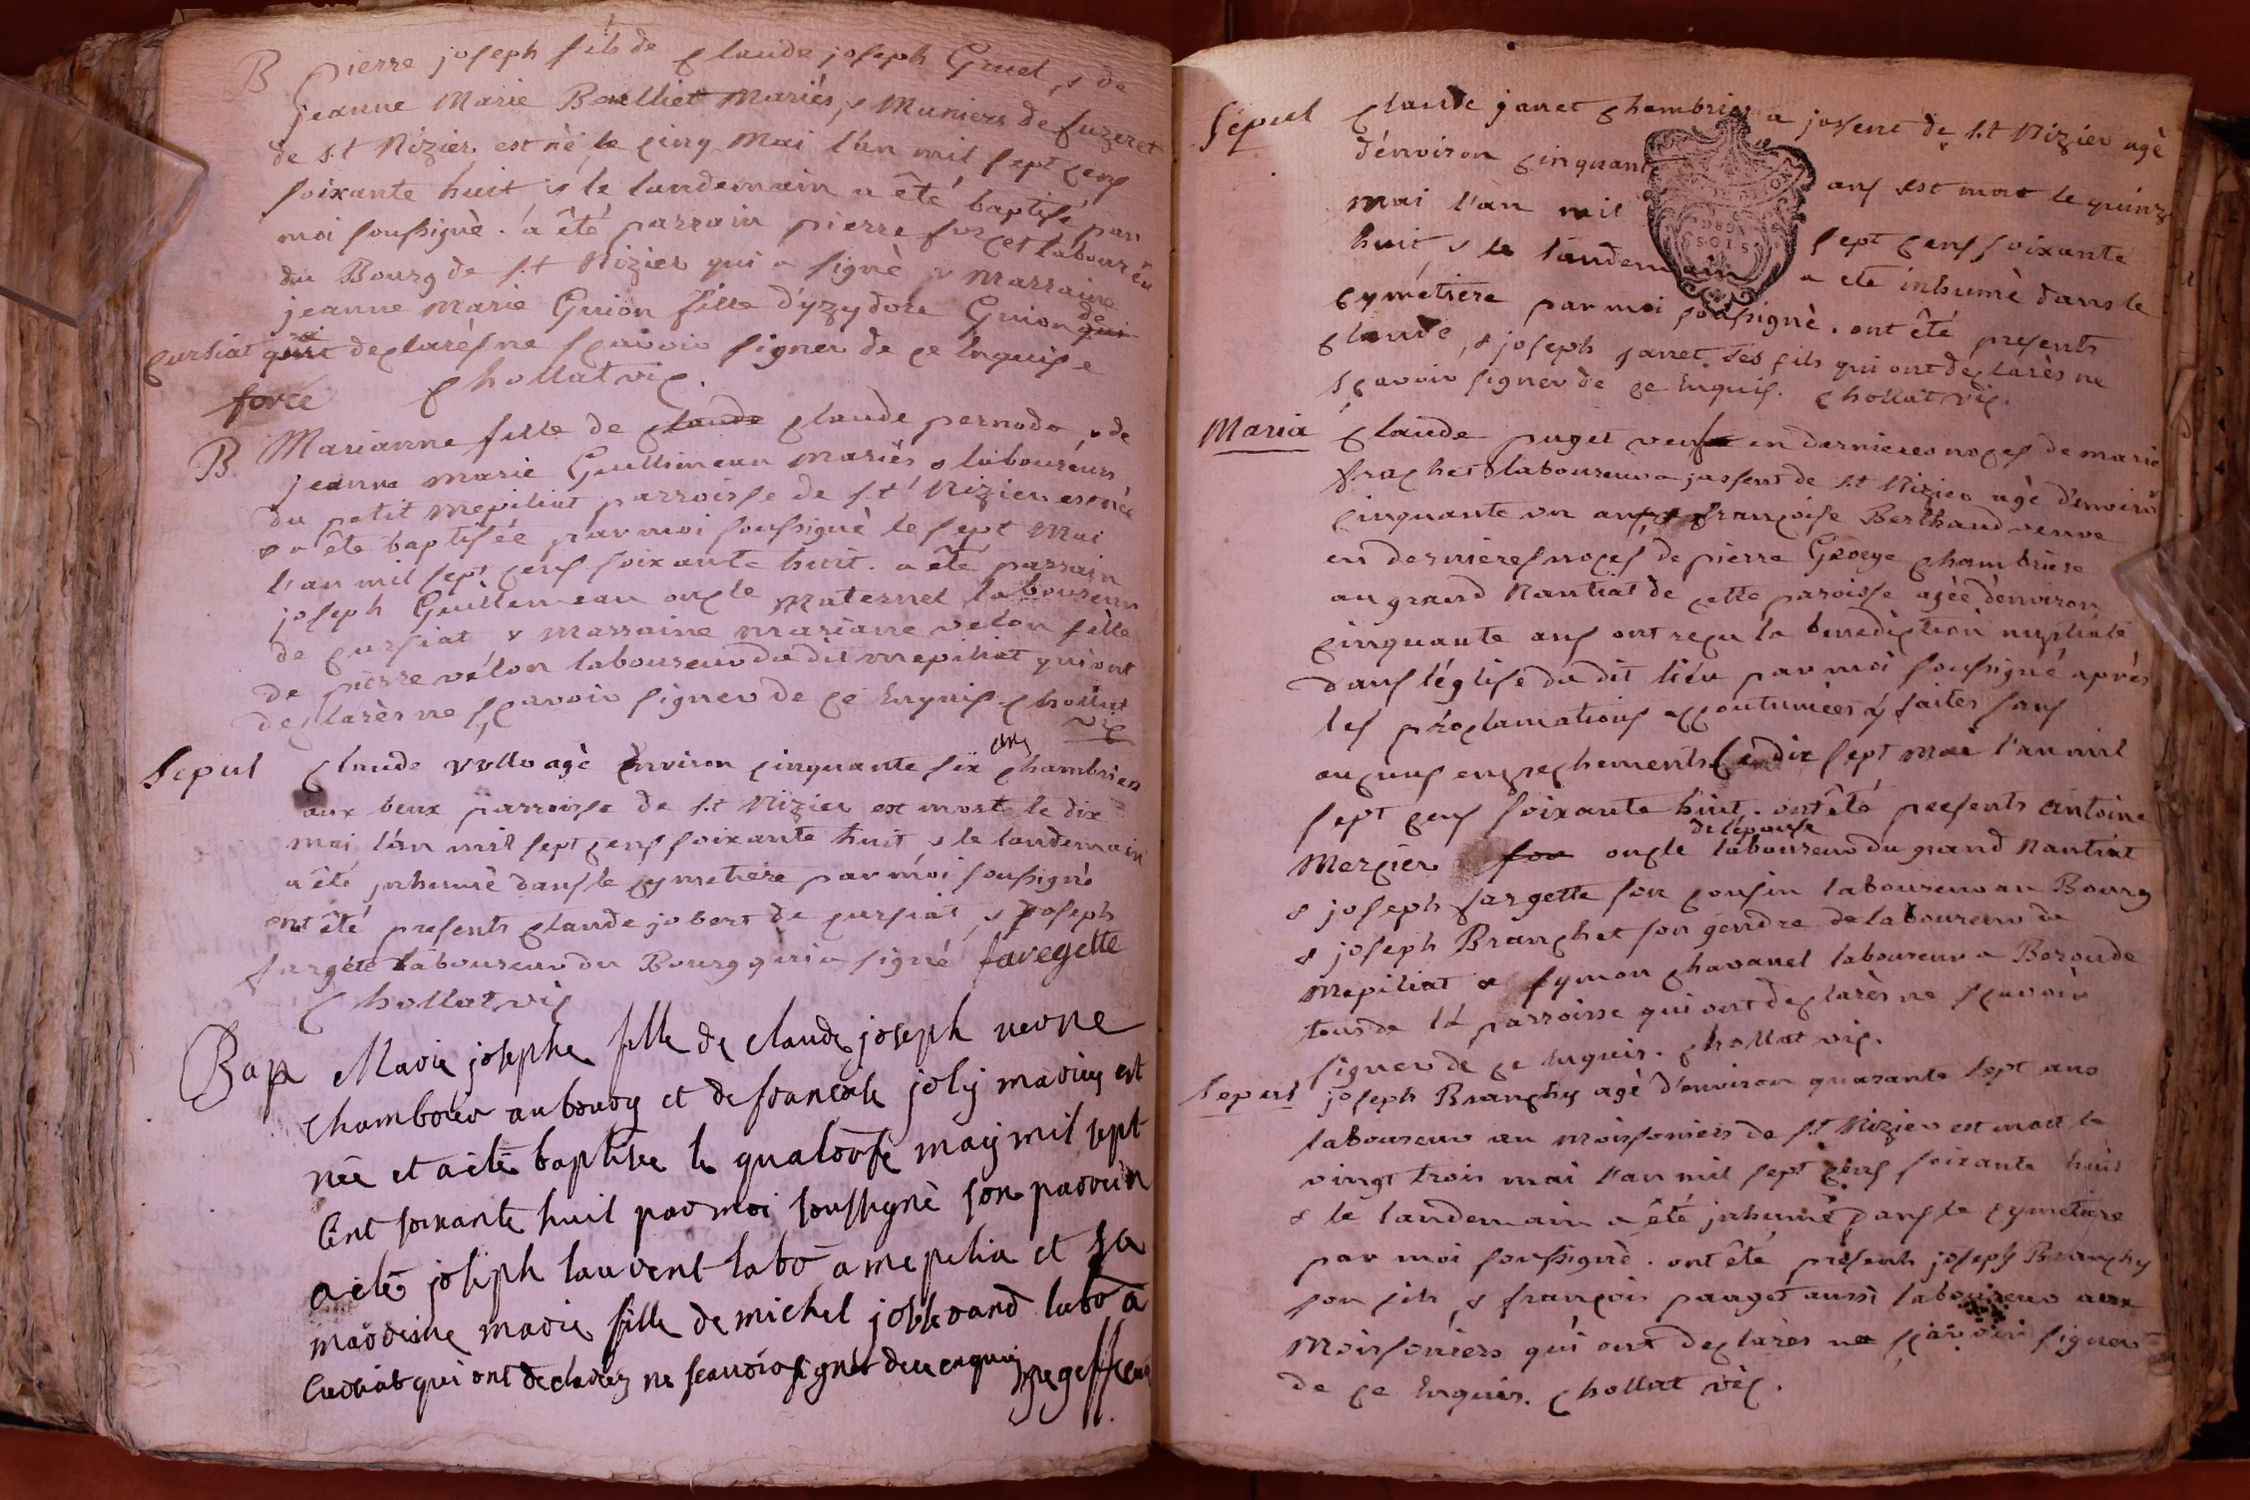 B pierre joseph fils de claude joseph Gruel & de
jeanne Marie Boelliet Mariés, & Muniers de fuzeret
de s.t Nizier est nè le cinq Mai l'an mil sept cens
soixante huit & le landemain a êté baptisé par
moi soussignè. a êté parrain pierre furcet laboureu
du Bourg de s.t Nizier qui a signè & Marraine
jeanne Marie Guion fille d'yzydore Guion de
Cursiat qui a declarès ne sçavoir signer de ce Enquise
forcé chollat vic.
B Marianne fille de claude claude pernodo, & de
jeanne marie Guillimean Mariés & laboureurs
du petit Mepiliat parroisse de s.t Nizier est née
& a êté baptisée par moi soussignè le sept Mai
l'an mil sept cens soixante huit. a êté parrain
joseph Guillemean oncle Maternel laboureur
de cursiat & Marraine Mariane velon fille
de pierre vélon laboureur du dit mepiliat qui ont
declarès ne sçavoir signer de ce Enquis chollat
vic
Sepul claude vullo agè Environ cinquante six ans chambrier
aux beux parroisse de s.t Nizier est morte le dix
mai l'an mil sept cens soixante huit & le landemain
a êté jnhumè dans le cymetiere par mói soussignè
ont êté presents claude jobert de cursiat, & joseph
fargéte laboureur du Bourg qui a signé favegette
Chollat vic
Bap Marie josephe fille de claude joseph neone
Chambrier au bourg et de francoise joly mariez est
née et a été baptisée le quatorse may mil sept
Cent soixante huit par moi soussignè son parrein
a été joseph lauvent labo a mepelia et sa
marreine marie fille de michel jossserand labo a
Curciat qui ont declarez ne scauoir signer de ce enquis
Sepul claude janet chambrier a josent de s.t Nizier agè
d'environ cinquante ans est mort le quinze
mai l'an mil sept cens soixante
huit, & le landemain a eté inhumè dans le
cymétiere par moi soussignè. ont êté presents
claude, & joseph janet ses fils qui ont declarès ne
sçavoir signer de ce Enquis. chollat vic.
Maria claude puget veuf en dernieres noces de marie
frachet laboureur a jassent de s.t Nizier agè d'enviro
cinquante un ans & françoise Berthaud veuve
en dernières noces de pierre George chambriere
au grand Nantiat de cette paroisse agèe d'environ
cinquante ans ont reçu la benediction nuptiale
dans l'église du dit liéu par moi soussigné après
les proclamations accoutumées y faites sans
aucuns empechements Ce dix sept mai l'an mil
sept cens soixante huit. ont été presents antoine
Mercier son oncle de l'épouse laboureur du grand Nantiat
& joseph fargette son cousin laboureur au Bourg
& joseph Branchet son gendre de laboureur de
Mepiliat & symon chavanel laboureur a Beroude
tous de la parroisse qui ont declarès ne sçavoir
signer de ce Enquis. chollat vic.
Sepul joseph Branchy agè d'environ quarante sept ans
laboureur au moissoniers de s.t Nizier est mort le
vingt trois mai l'an mil sept cens soixante huit
& le landemain a êté jnhumè dans le cymetiere
par moi soussignè. ont êté presents joseph Branchy
son fils, & françois pauget aussi laboureur aux
Moissoniers qui ont declarès ne sçavoir signer
de ce Enquis. chollat vic.